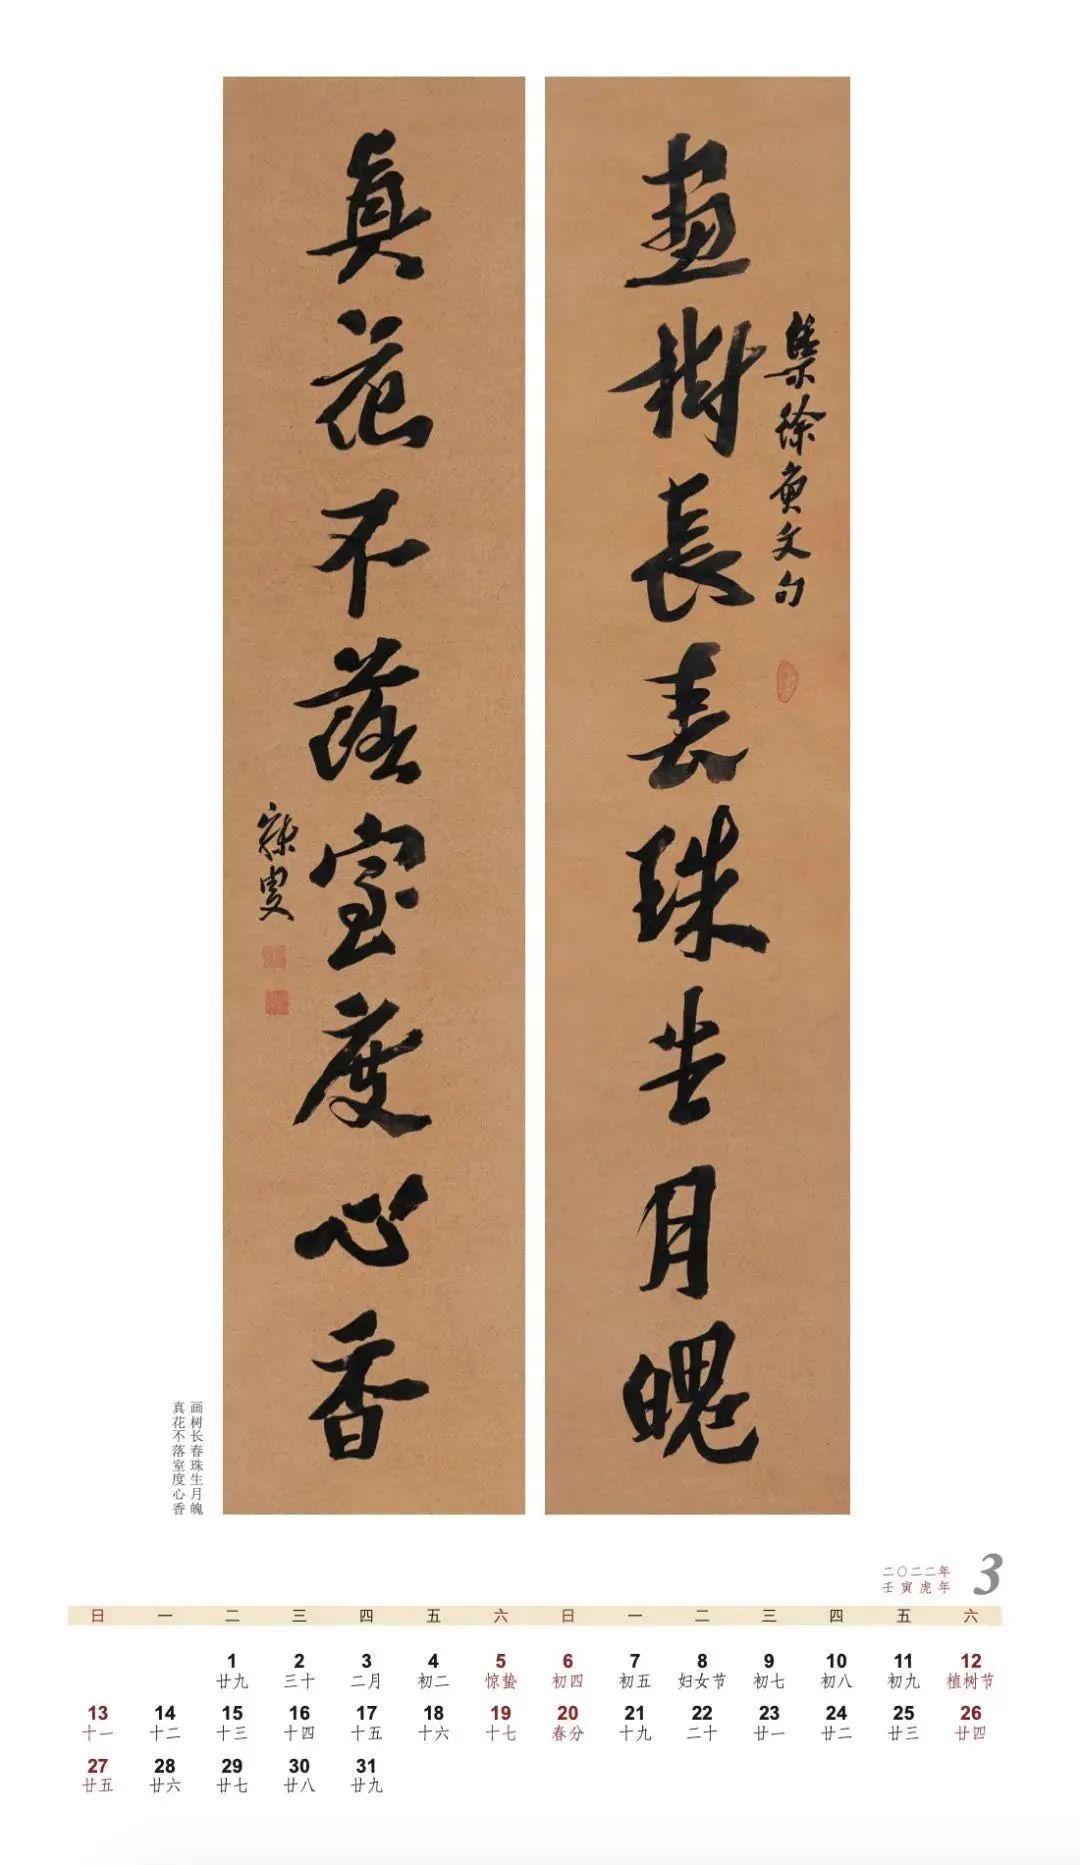 集徐寅文句
畫樹長春珠生月魄
真花不落室度心香
寐叟
画树长春珠生月魄
真花不落室度心香
二〇二二年 3
壬寅虎年
日 一 二 三 四 五 六 日 一 二 三 四 五 六
1 2 3 4 5 6 7 8 9 10 11 12
廿九 三十 二月 初二 惊蛰 初四 初五 妇女节 初七 初八 初九 植树节
13 14 15 16 17 18 19 20 21 22 23 24 25 26
十一 十二 十三 十四 十五 十六 十七 春分 十九 二十 廿一 廿二 廿三 廿四
27 28 29 30 31
廿五 廿六 廿七 廿八 廿九